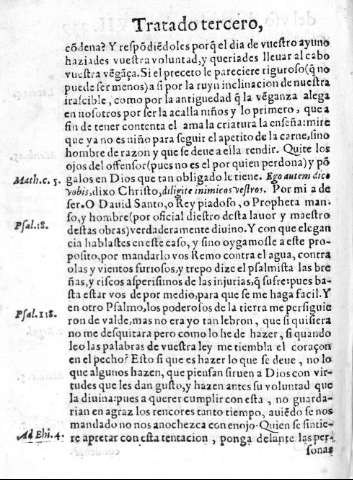 Tratado tercero,
cõdena? Y respõdiẽdoles porq̃ el dia de vuestro ayuno
haziades vuestra voluntad, y queriades lleuar al cabo
vuestra vẽgãça. Si el preceto le pareciere riguroso (q̃ no
puede ser menos) a si por la ruyn inclinacion de nuestra
irascible, como por la antiguedad q̃ la vẽganza alega
en nosotros por ser la acalla niños y lo primero, que a
fin de tener contenta el ama la criatura la enseña: mire
que ya no es niño para seguir el apetito de la carne, sino
hombre de razon y que se deue a ella rendir. Quite los
ojos del offensor (pues no es el por quien perdona) y põ
galos en Dios que tan obligado le tiene. Ego autem dico
Math. c. 5.
vobis, dixo Christo, diligite inimicos vestros. Por mi a de
ser. O Dauid Santo, o Rey piadoso, o Propheta man-
so, y hombre (por oficial diestro desta lauor y maestro
destas obras) verdaderamente diuino. Y con que elegan
Psal. 18.
cia hablastes en este caso, y sino oygamosle a este pro-
posito, por mandarlo vos Remo contra el agua, contra
olas y vientos furiosos, y trepo dize el psalmista las bre
ñas, y riscos asperissimos de las injurias, q̃ sufre: pues ba-
sta estar vos de por medio, para que se me haga facil. Y
en otro Psalmo, los poderosos de la tierra me persiguie
Psal. 118.
ron de valde, mas no era yo tan lebron, que si quisiera
no me desquitara pero como lo he de hazer, si quando
leo las palabras de vuestra ley me tiembla el coraçon
en el pecho? Esto si que es hazer lo que se deue, no lo
que algunos hazen, que piensan siruen a Dios con vir-
tudes que les dan gusto, y hazen antes su voluntad que
la diuina: pues a querer cumplir con esta, no guarda-
rian en agraz los rencores tanto tiempo, auiẽdo se nos
mandado no nos anochezca con enojo. Quien se sintie-
Ad Ehi. 4.
re apretar con esta tentacion, ponga delante las per-
sonas